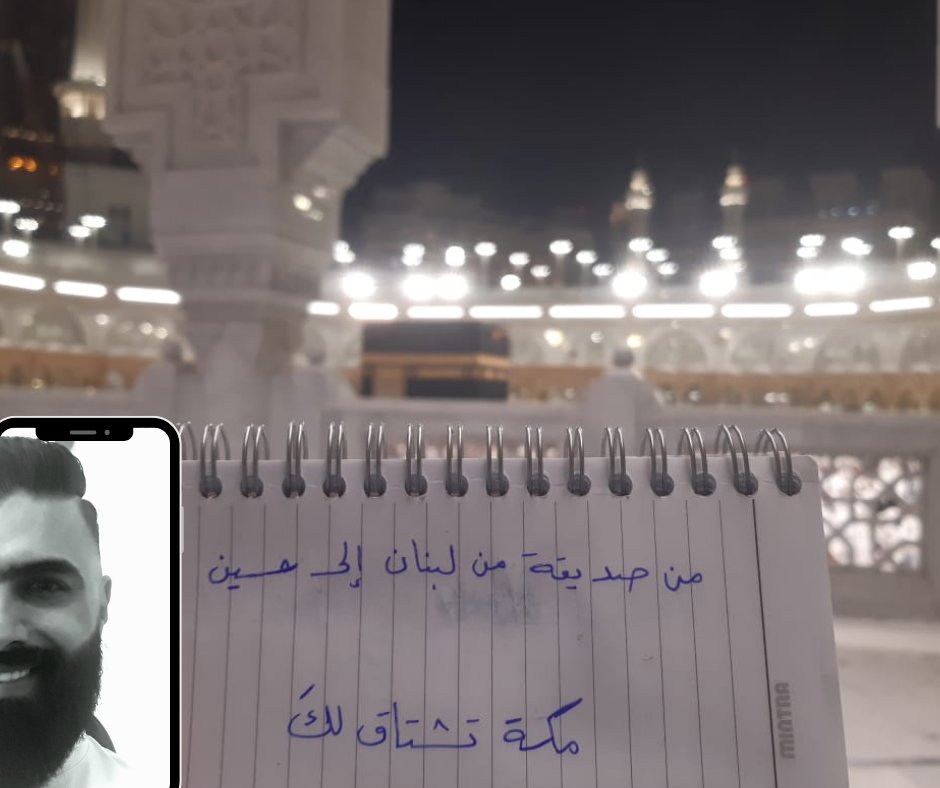 من صديقة من لبنان إلى حسين
مكة تشتاق لكَ
MINTRA